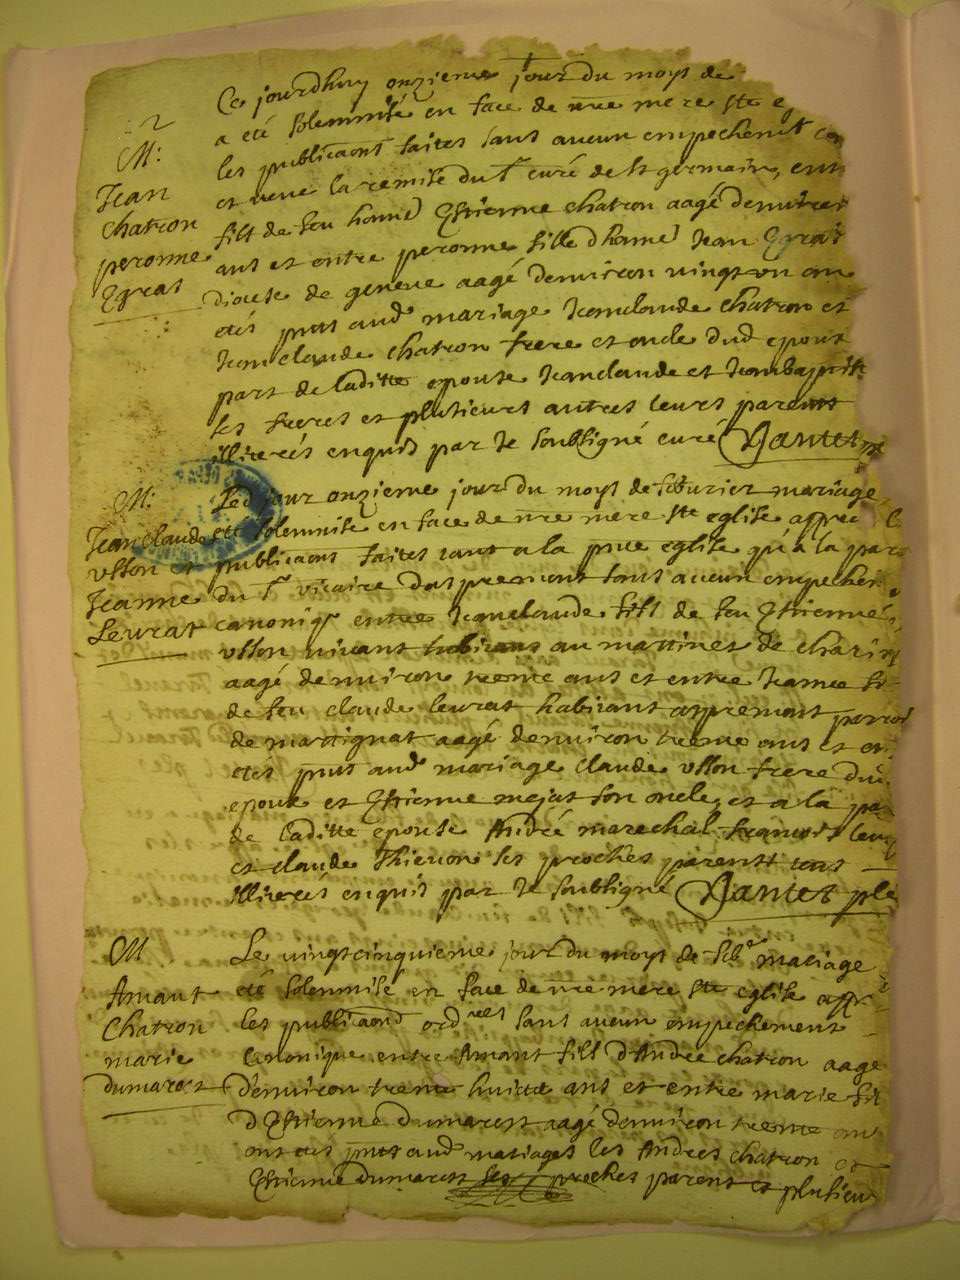 2
M:
Jean
chatron
peronne
Egrat
Ce jourdhuy onzieme jour du moys de
a eté solemnisé en face de nre mere ste e
les publicaons faites sans aucun empechemt ca
et veue la remise du sr curé de st germain, entr
fils de feu honn Estienne chatron aagé denviron
ans et entre peronne fille dhonnê Jean Egrat
diocese de geneve aagé denviron vingt un an
etés pnts aud mariage Jeanclaude chatron et
Jeanclaude chatron frere et oncle dud epoux
part de laditte epouse Jeanclaude et Jeanbaptiste
ses freres et plusieurs autres leurs parents
illiterés enquis par Je soubsigné curé Dantet
M:
Jeanclaude
usson et
Jeanne
Levrat
Led jour onzieme jour du moys de febvrier mariage
eté solemnise en face de nre mere ste eglise apprè
publicaons faites tant a la pnte eglise qu'a la paro
du sr vicaire daspremont sans aucun empeche
canoniq entre Jeanclaude fils de feu Estienne
usson vivant habitant au martinet de charix
aagé denviron trente ans et entre Jeanne fi
de feu claude levrat habitant appremont parroi
de martignat aagé denviron trente ans et on
etés pnts aud mariage claude usson frere dud
epoux et Estienne mejat son oncle, et a la par
de laditte epouse André marechal francois lev
et claude Thievon ses proches parents tous
illiterés enquis par Je soubsigné Dantet ptre
M
Amant
Chatron
marie
dumarest
Le vingtcinquieme jour du moys de febr mariage
eté solemnisé en face de nre mere ste eglise appr
les publicaons ordres sans aucun empechement
Canonique entre Amant fils d'André chatron aage
denviron trente huitte ans et entre marie fil
d Estienne dumarest aagé denviron trente an
ont etés pnts aud mariages les Andres chatron et
Estienne dumarest proches parents et plusieu